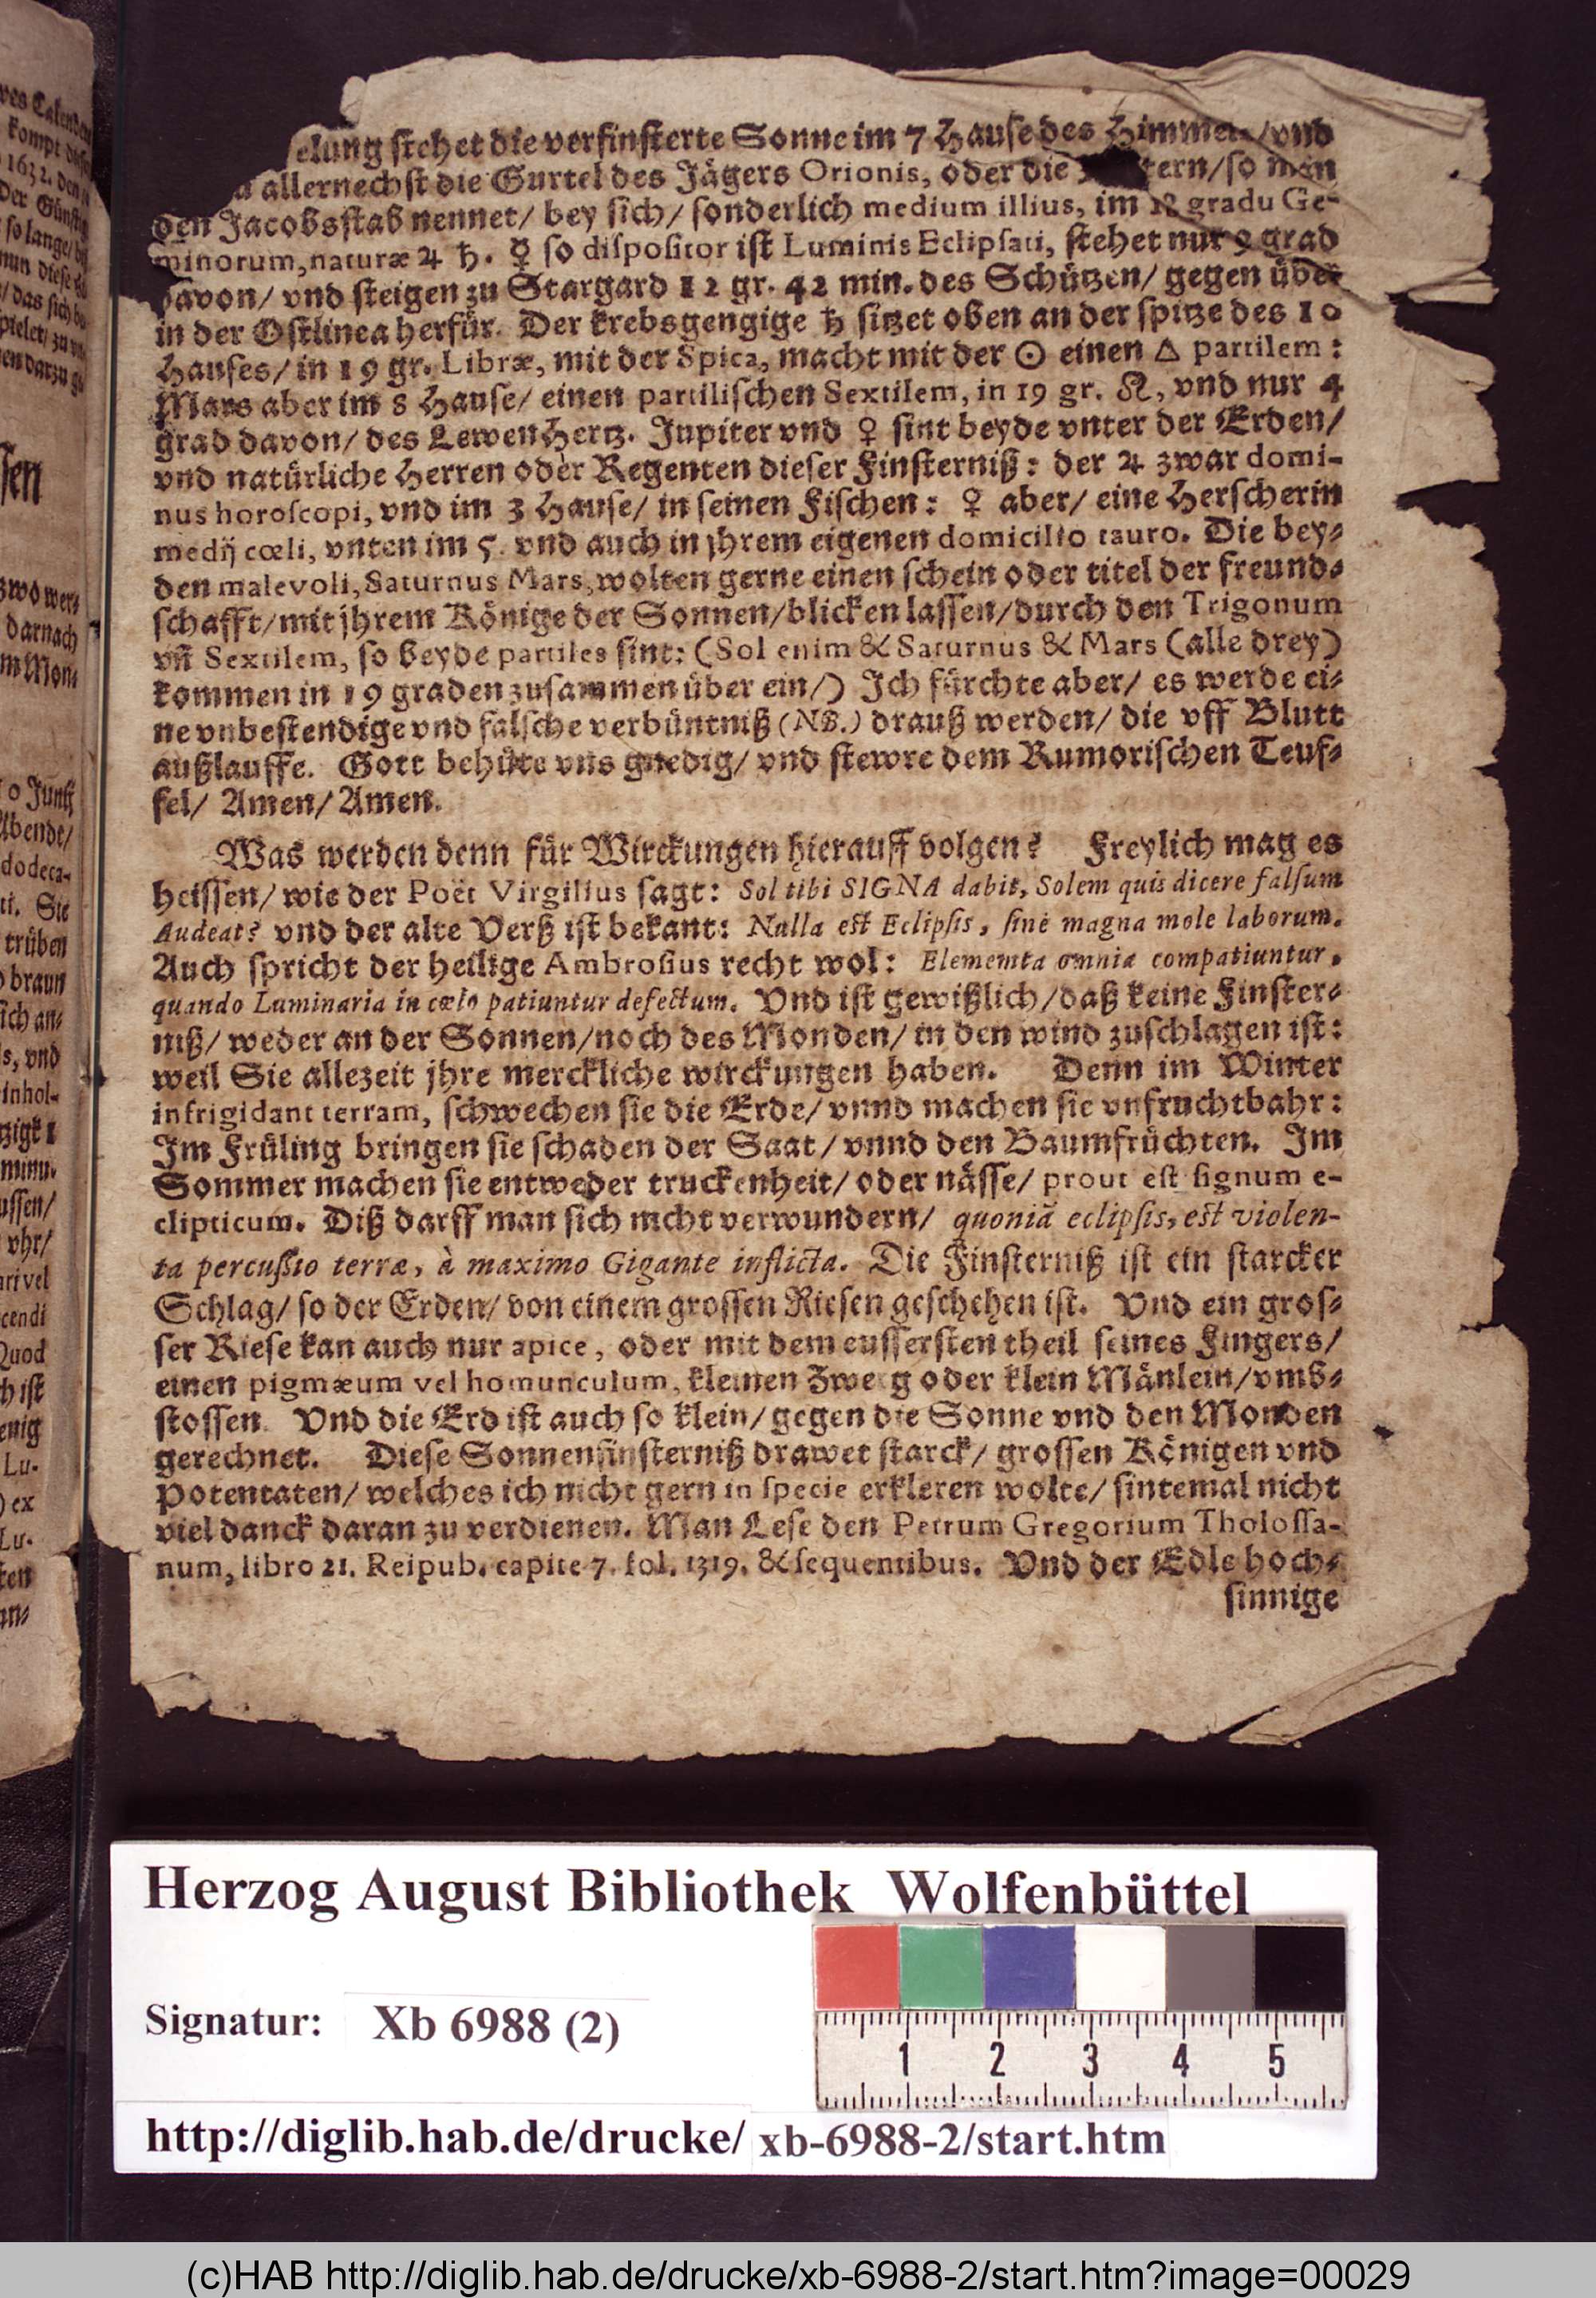 elung stehet die verfinsterte Sonne im 7 Hause des Himmels/vnd
allernechst die Gürtel des Jägers Orionis, oder die tern/so man
den Jacobsstab nennet/ bey sich/ sonderlich medium illius, im 18 gradu Ge-
minorum, naturæ ♃ ♄. ☿ so dispositor ist Luminis Eclipsati, stehet nur 9 grad
davon/ vnd steigen zu Stargard 12 gr. 42 min. des Schützen/ gegen über
in der Ostlinea herfür. Der krebsgengige ♄ sitzet oben an der spitze des 10
Hauses/ in 19 gr. Libræ, mit der Spica, macht mit der ☉ einen △ partilem:
Mars aber im 8 Hause/ einen partilischen Sextilem, in 19 gr. ♌, vnd nur 4
grad davon/ des Lewen Hertz. Jupiter vnd ♀ sint beyde vnter der Erden/
vnd natürliche Herren oder Regenten dieser Finsterniß: der ♃ zwar domi-
nus horoscopi, vnd im 3 Hause/ in seinen Fischen: ♀ aber/ eine Herscherin
medij cœli, vnten im 5. vnd auch in jhrem eigenen domicilio tauro. Die bey-
den malevoli, Saturnus Mars, wolten gerne einen schein oder titel der freund-
schafft/mit jhrem Könige der Sonnen/blicken lassen/durch den Trigonum
vñ Sextilem, so beyde partiles sint: (Sol enim & Saturnus & Mars (alle drey)
kommen in 19 graden zusammen über ein/) Ich fürchte aber/ es werde ei-
ne vnbestendige vnd falsche verbüntniß (NB.) drauß werden/ die vff Blutt
außlauffe. Gott behüte vns gnedig/ vnd stewre dem Rumorischen Teuf-
fel/ Amen/ Amen.
Was werden denn für Wirckungen hierauff volgen? Freylich mag es
heissen/ wie der Poët Virgilius sagt: Sol tibi SIGNA dabit, Solem quis dicere falsum
Audeat? vnd der alte Verß ist bekant: Nulla est Eclipsis, sine magna mole laborum.
Auch spricht der heilige Ambrosius recht wol: Elememta omnia compatiuntur,
quando Luminaria in cœlo patiuntur defectum. Vnd ist gewißlich/daß keine Finster-
niß/ weder an der Sonnen/noch des Monden/ in den wind zuschlagen ist:
weil Sie allezeit jhre merckliche wirckungen haben. Denn im Winter
infrigidant terram, schwechen sie die Erde/ vnnd machen sie vnfruchtbahr:
Im Früling bringen sie schaden der Saat/ vnnd den Baumfrüchten. Im
Sommer machen sie entweder truckenheit/ oder nässe/ prout est signum e-
clipticum. Diß darff man sich nicht verwundern/ quoniā eclipsis, est violen-
ta percussio terræ, à maximo Gigante inflicta. Die Finsterniß ist ein starcker
Schlag/ so der Erden/ von einem grossen Riesen geschehen ist. Vnd ein gros-
ser Riese kan auch nur apice, oder mit dem eussersten theil seines Fingers/
einen pigmæum vel homunculum, kleinen Zwerg oder klein Mänlein/vmb-
stossen. Vnd die Erd ist auch so klein/ gegen die Sonne vnd den Monden
gerechnet. Diese Sonnenfinsterniß drawet starck/ grossen Königen vnd
Potentaten/ welches ich nicht gern in specie erkleren wolte/ sintemal nicht
viel danck daran zu verdienen. Man Lese den Petrum Gregorium Tholossa-
num, libro 21. Reipub. capite 7. fol. 1319. & sequentibus. Vnd der Edle hoch-
sinnige
Herzog August Bibliothek Wolfenbüttel
Signatur: Xb 6988 (2)
1 2 3 4 5
http://diglib.hab.de/drucke/ xb-6988-2/start.htm
(c)HAB http://diglib.hab.de/drucke/xb-6988-2/start.htm?image=00029